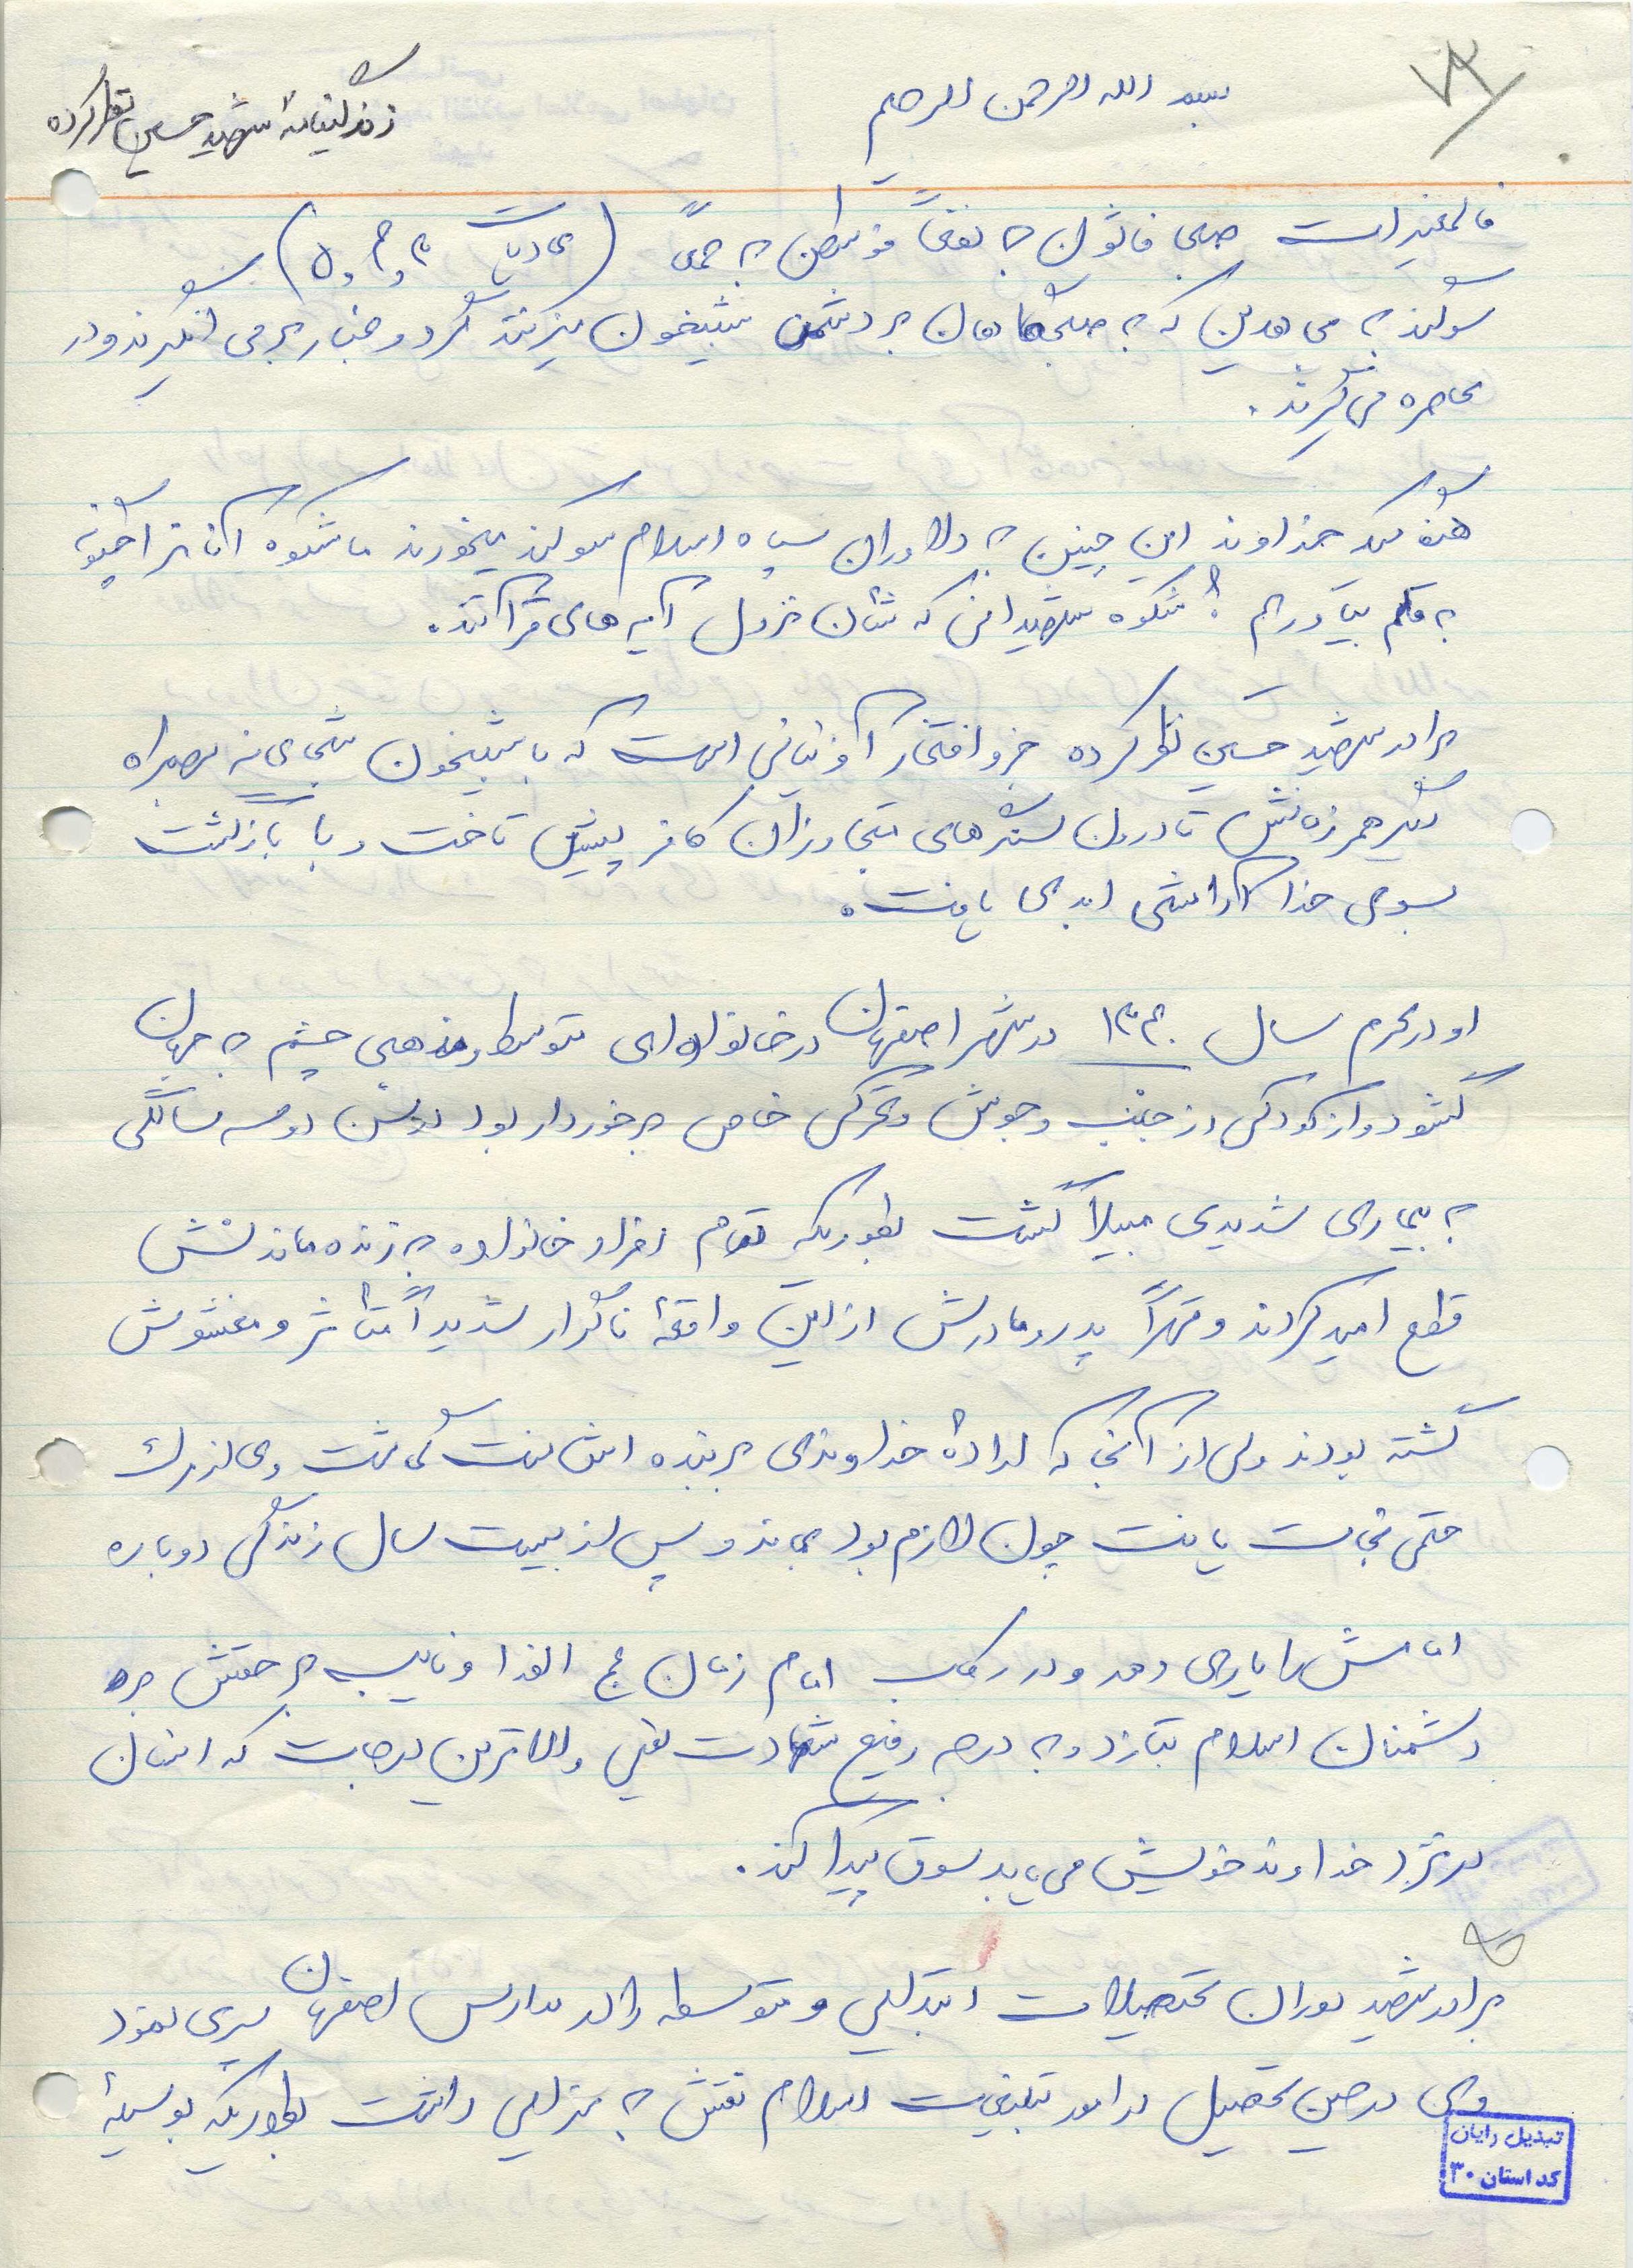 ۷۳
بسم الله الرحمن الرحیم
زندگینامهٔ شهید حسین نظرکرده
فالمغیرات صبحاً فاثرن به نقعاً فوسطن به جمعاً (عادیات ۳ و ۴ و ۵)
سوگند به مجاهدینی که به صبحگاهان بر دشمن شبیخون میزنند گرد و غبار برمی انگیزند و در
محاصره می گیرند.
هنگامیکه خداوند این چنین به دلاوران سپاه اسلام سوگند میخورند ما شکوه آنانرا چگونه
به قلم بیاوریم؟ شکوه شهیدانی که شأن نزول آیه های قرآنند.
برادر شهید حسین نظرکرده جزو افتخار آفرینانی است که با شبیخون شجاعانه بهمراه
دیگر همرزمانش تا درون سنگرهای متجاوزان کافر پیش تاخت و با بازگشت
بسوی خدا آرامشی ابدی یافت.
او در محرم سال ۱۳۴۰ در شهر اصفهان در خانواده ای متوسط و مذهبی چشم به جهان
گشود و از کودکی از جنب و جوش و تحرکی خاص برخوردار بود در سن دو سه سالگی
به بیماری شدیدی مبتلا گشت بطوریکه تمام افراد خانواده به زنده ماندنش
قطع امید کردند و قهراً پدر و مادرش از این واقعهٔ ناگوار شدیداً متأثر و مغشوش
گشته بودند ولی از آنجا که ارادهٔ خداوندی بر بنده اش منت گذاشت وی از مرگ
حتمی نجات یافت چون لازم بود بماند و پس از بیست سال زندگی دوباره
امامش را یاری دهد و در رکاب امام زمان عج الفدا و نایب بر حقش بر
دشمنان اسلام بتازد و به درجه رفیع شهادت یعنی والاترین درجات که انسان
در نزد خداوند خویش می یابد سوق پیدا کند.
برادر شهید دوران تحصیلات ابتدایی و متوسطه را در مدارس اصفهان سپری نمود
وی در حین تحصیل در امور تبلیغات اسلام نقش به سزایی داشت بطوریکه بوسیلهٔ
تبدیل رایان
کد استان ۳۰